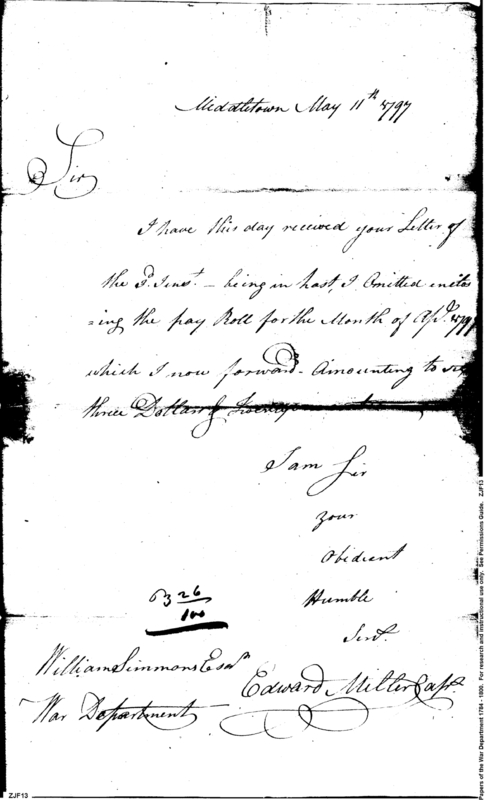 Middletown May 11th 1797
Sir
I have this day received your Letter of
the 3d. Inst. – being in hast, I Omitted enclos
=ing the pay Roll for the Month of Apl. 1797
which I now forward – Amounting to
three Dollars & Twenty
I am Sir
your
Obedient
Humble
Servt.
63 26/100
William Simmons Esqr
War Department
Edward Miller Capt.
ZJF13
Papers of the War Department 1784 - 1800. For research and instructional use only. See Permissions Guide. ZJF13